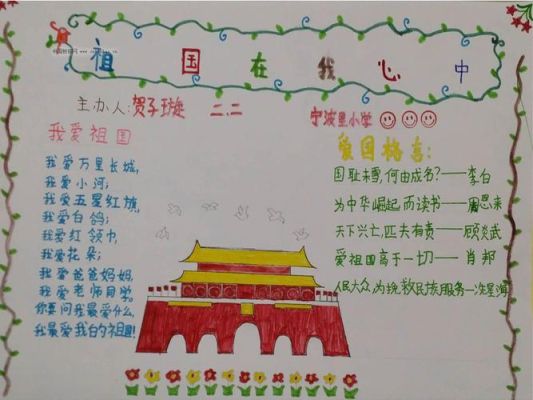 祖国在我心中
主办人:贺子璇 二.二 宁波里小学
我爱祖国
我爱万里长城,
我爱小河;
我爱五星红旗,
我爱白鸽;
我爱红领巾,
我爱花朵;
我爱爸爸妈妈,
我爱老师同学。
你要问我最爱什么,
我最爱我的祖国!
爱国格言:
国耻未雪,何由成名?——李白
为中华崛起而读书——周恩来
天下兴亡,匹夫有责——顾炎武
爱祖国高于一切——肖邦
人民大众,为挽救民族服务—冼星海